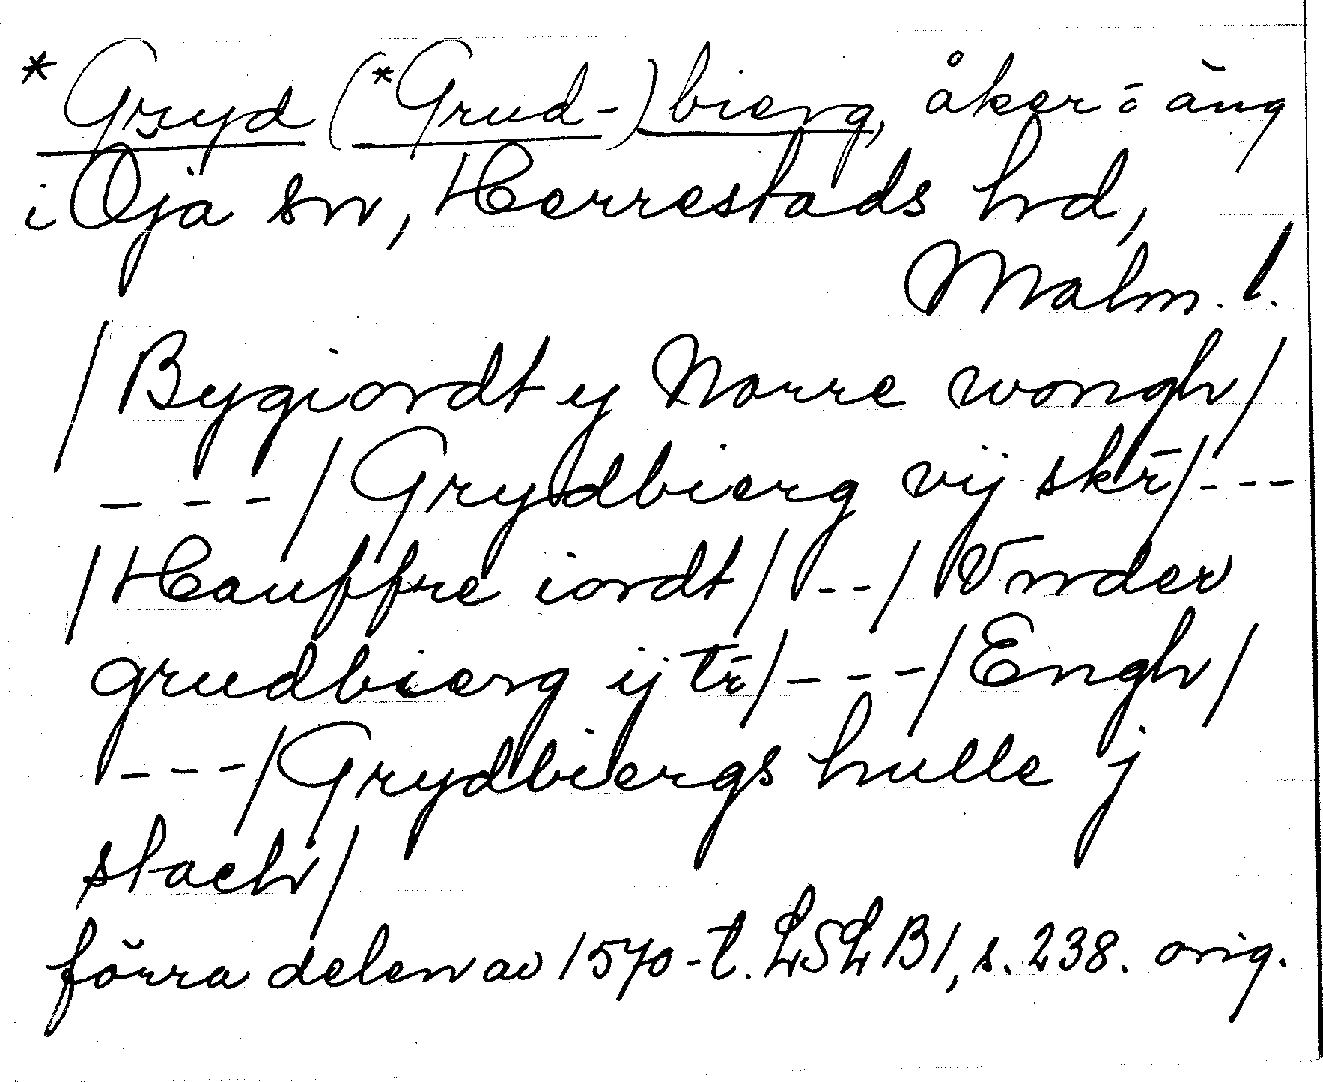 *Gryd (*Grud-) bierg, åker o äng
i Öja sn, Herrestads hd,
Malm. l.
/Bygiordt y Norre wongh/
---/Grydbierg vij skr̄/---
/Hauffre iordt/ --/ Vnder
grudbierg ij tr̄/---/Engh/
---/Grydbiergs hulle j
stach/
förra delen av 1570-t. LSLB1, s. 238. orig.